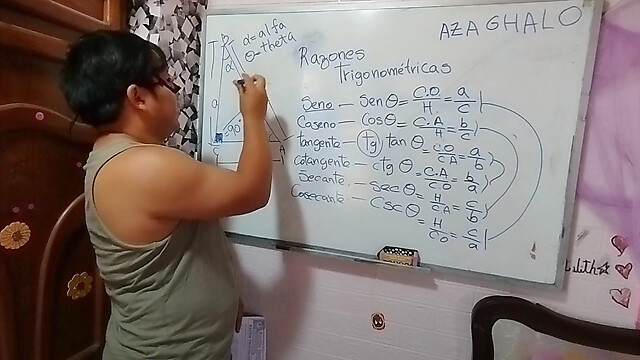 AZAGHALO
α = alfa
θ - theta
B
α
a
90°
C
A
Razones
Trigonométricas
Seno — Sen θ = C.O/H = a/c
Coseno — Cos θ = C.A/H = b/c
tangente — tg tan θ = CO/CA = a/b
cotangente — ctg θ = C.A/CO = b/a
Secante — sec θ = H/CA = c/b
Cosecante — Csc θ = H/CO = c/a